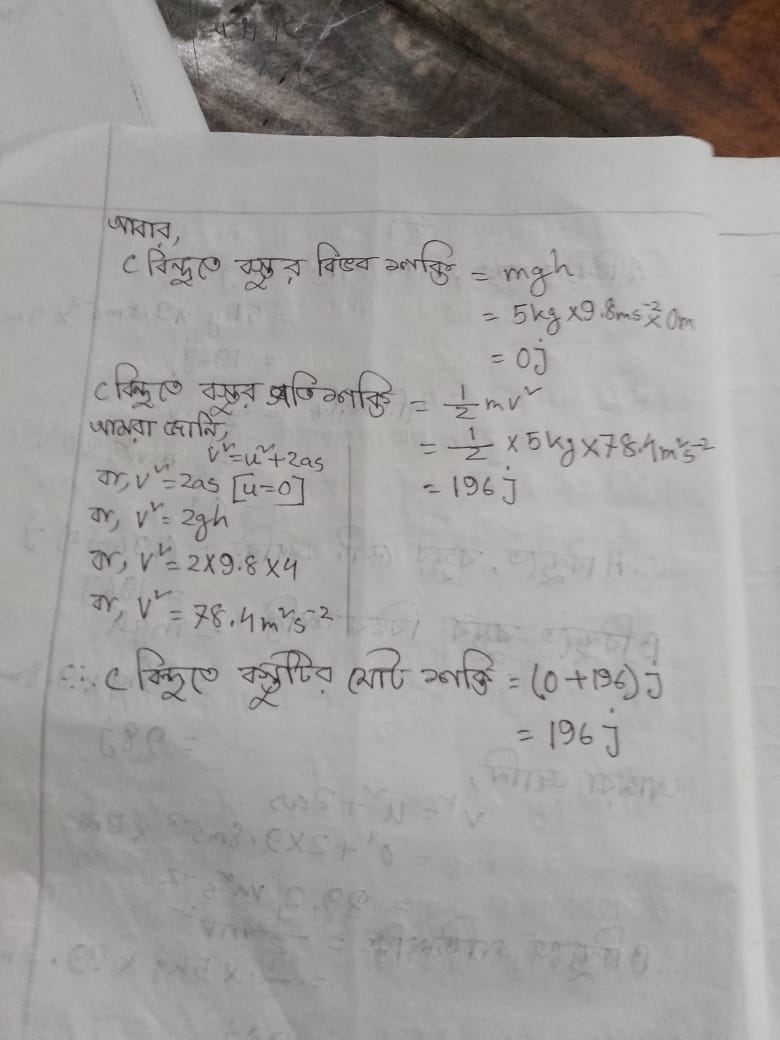 আবার,
C বিন্দুতে বস্তুর বিভব শক্তি = mgh
= 5kg×9.8ms⁻²×0m
= 0j
C বিন্দুতে বস্তুর গতিশক্তি = 1/2 mv²
আমরা জানি,
= 1/2 × 5kg×78.4m²s⁻²
v²=u²+2as
বা, v²=2as [u=0]
= 196j
বা, v²= 2gh
বা, v²= 2×9.8×4
বা, v²= 78.4m²s⁻²
∴ C বিন্দুতে বস্তুটির মোট শক্তি = (0+196)j
= 196j